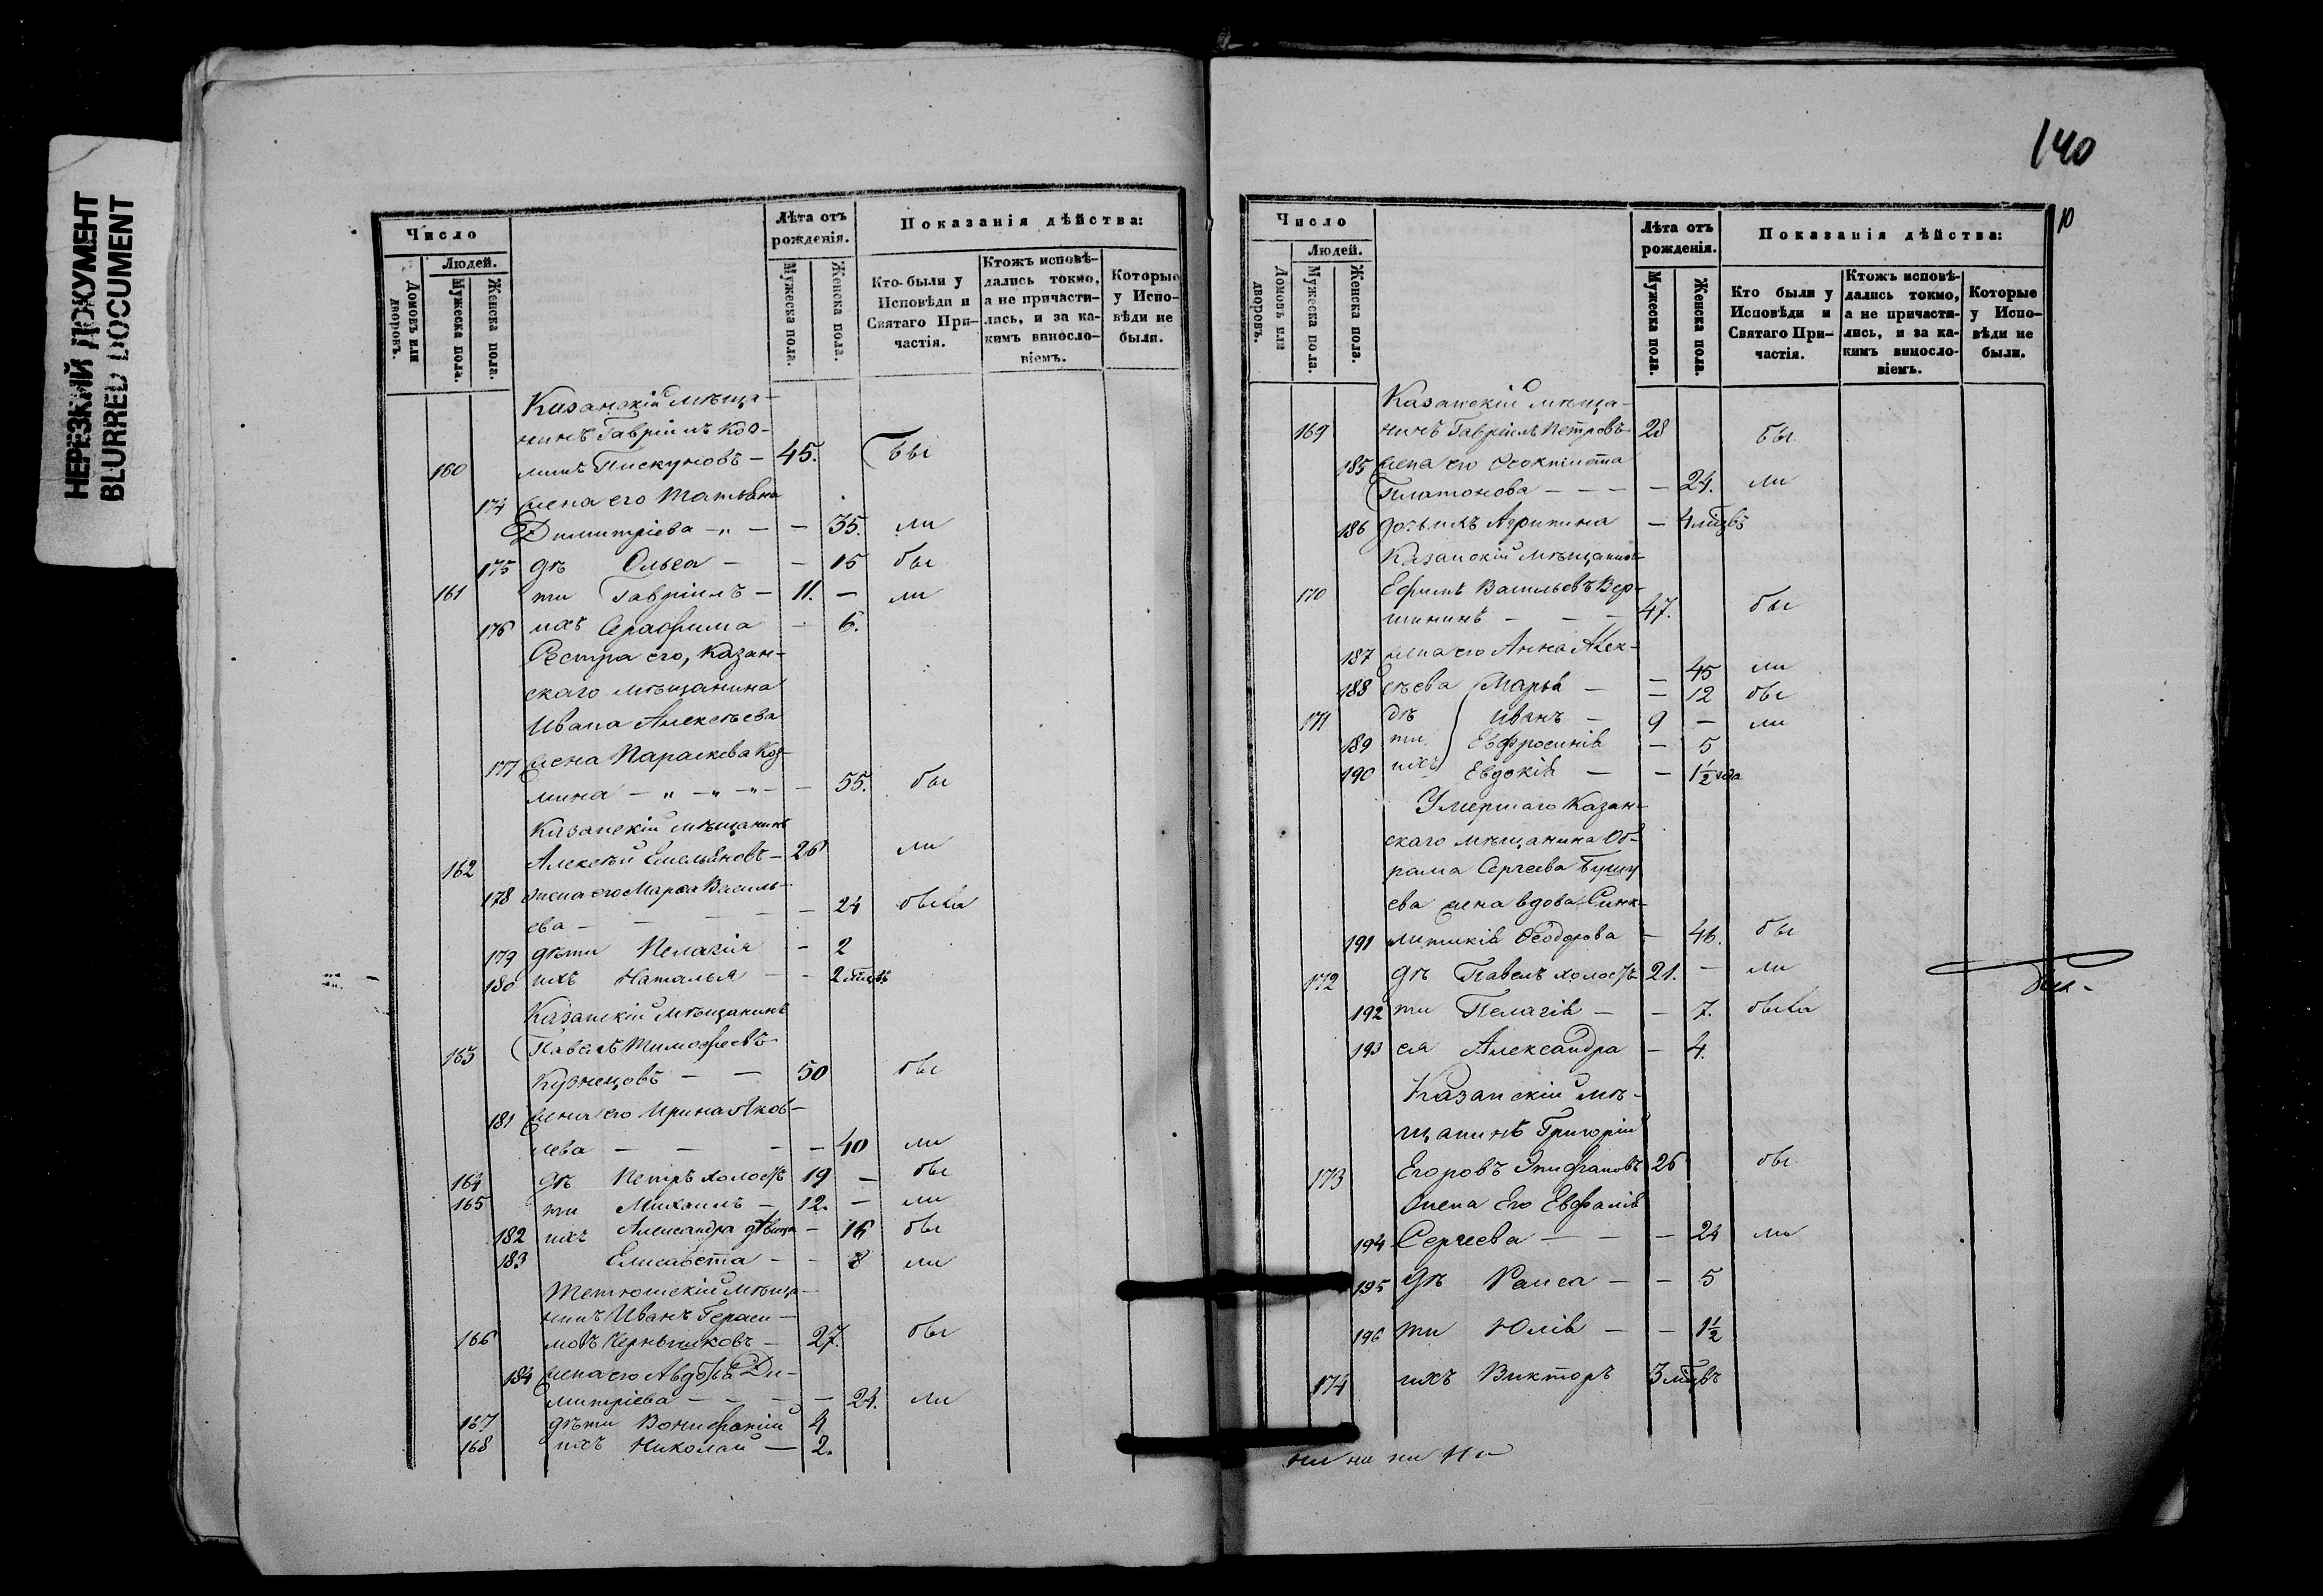 НЕРЕЗКИЙ ДОКУМЕНТ
BLURRED DOCUMENT
Число
Людей.
Домовъ или дворовъ.
Мужеска пола.
Женска пола.
Лѣта отъ рожденія.
Мужеска пола.
Женска пола.
Показанія дѣйства:
Кто были у Исповѣди и Святаго Причастія.
Ктожъ исповѣдались токмо, а не причастились, и за какимъ винословіемъ.
Которые у Исповѣди не были.
Казанскій мѣща-
нинъ Гавріилъ Коз-
160 минъ Пискуновъ — 45. Бы
174 жена его Татьяна
Димитріева — „ — — 35. ли
175 дѣ Ольга — — 15 бы
161 ти Гавріилъ — 11. — ли
176 ихъ Серафима — 6.
Сестра его, Казан-
скаго мѣщанина
Ивана Алексѣева
177 жена Параскева Коз-
мина — „ — „ — „ — — 55. бы
Казанскій мѣщанинъ
162 Алексѣй Емельяновъ — 26 ли
178 жена его Марѳа Василь-
ева — — — — 24 была
179 дѣти Пелагія — 2
180 ихъ Наталья — — 2 мѣсв
Казанскій мѣщанинъ
163 Павелъ Тимофеевъ
Кузнецовъ — — 50 бы
181 жена его Ирина Яков-
лева — — — — 40 ли
164 дѣ Петръ холостъ 19 — бы
165 ти Михаилъ — 12. — ли
182 ихъ Александра дѣвица — 16 бы
183 Елисавета — — 8 ли
Тетюшскій мѣща-
нинъ Иванъ Гераси-
166 мовъ 27. бы
184 жена его Авдотья Ди-
митріева — — — — 24. ли
167 дѣти Вонифатій 4
168 ихъ Николай — 2.
140
10
Число
Людей.
Домовъ или дворовъ.
Мужеска пола.
Женска пола.
Лѣта отъ рожденія.
Мужеска пола.
Женска пола.
Показанія дѣйства:
Кто были у Исповѣди и Святаго Причастія.
Ктожъ исповѣдались токмо, а не причастились, и за какимъ винословіемъ.
Которые у Исповѣди не были.
Казанскій мѣща-
169 нинъ Гавріилъ Петровъ 28 бы
185 жена его Ѳеоктиста
Платонова — — — — 24. ли
186 дочь ихъ Агрипина — 4 мѣсцвъ
Казанскій мѣщанинъ
170 Ефимъ Васильевъ Вер-
шининъ — — — 47. бы
187 жена его Анна Алек-
сѣева — 45 ли
188 Марья — — 12 бы
171 дѣ Иванъ — 9 — ли
189 ти Евфросинія — 5
190 ихъ Евдокія — — 1½ года
Умершаго Казан-
скаго мѣщанина Аб-
рама Сергеева Бушу
ева жена вдова Синк-
191 литикія Ѳеодорова — 46. бы
172 дѣ Павелъ холостъ 21. — ли
192 ти Пелагія — — 7. была
193 ея Александра — 4.
Казанскій мѣ-
щанинъ Григорій
173 Егоровъ Епифановъ 26 бы
Жена Его Евфалія
194 Сергеева — — — 24 ли
195 дѣ Раиса — — 5
196 ти Юлія — — 1½
174 ихъ Викторъ 3 мѣсцвъ